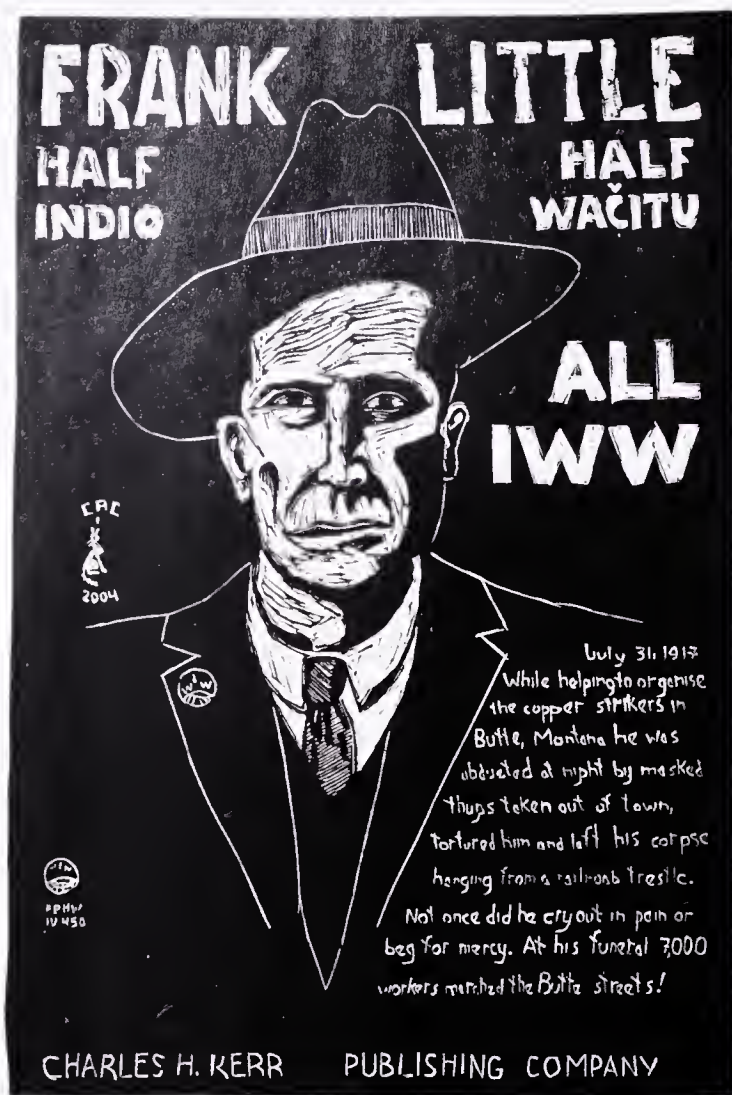 FRANK LITTLE
HALF
INDIO
HALF
WAČITU
ALL
IWW
CAC
2004
IWW
July 31, 1917
While helping to organise
the copper strikers in
Butte, Montana he was
abducted at night by masked
thugs taken out of town,
tortured him and left his corpse
hanging from a railroad trestle.
Not once did he cry out in pain or
beg for mercy. At his funeral 7,000
workers marched the Butte streets!
IU 450
CHARLES H. KERR PUBLISHING COMPANY